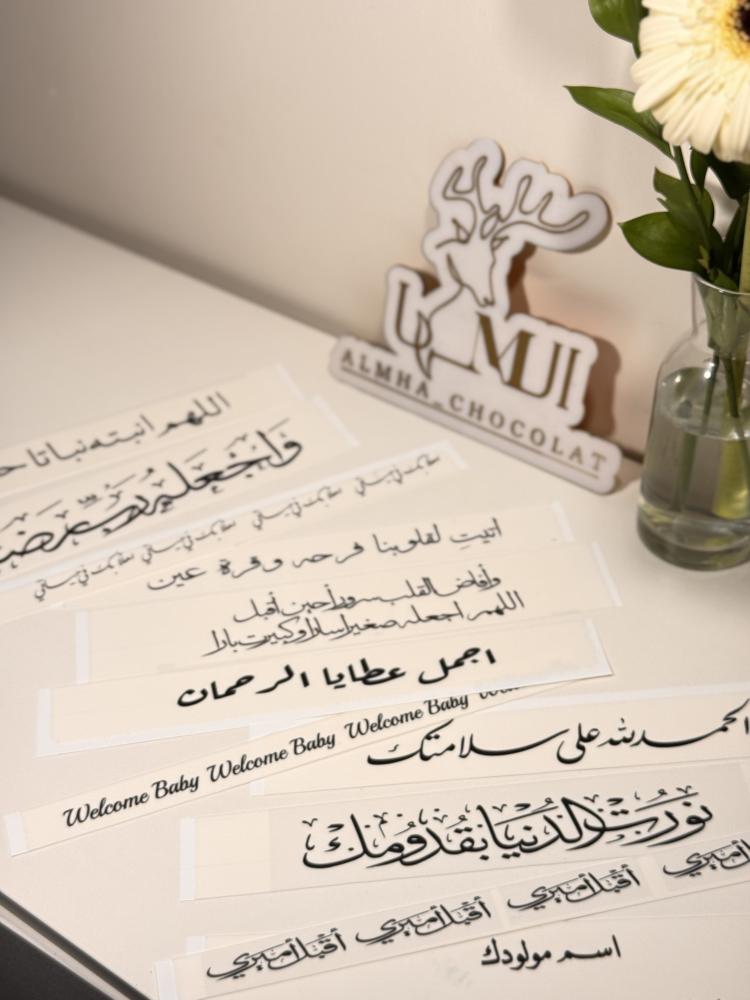 UMUJI
ALMHA_CHOCOLAT
اللهم انبته نباتا
واجعله رب رضيا
أتيتِ لقلوبنا فرحه وقرة عين
وأفاض القلب سروراً حين أقبل
اللهم اجعله صغيرا سارا وكبيرا بارا
اجمل عطايا الرحمان
Welcome Baby Welcome Baby Welcome Baby
الحمدلله على سلامتك
نورت الدنيا بقدومك
أقبل أميري أقبل أميري أقبل أميري أميري
اسم مولودك